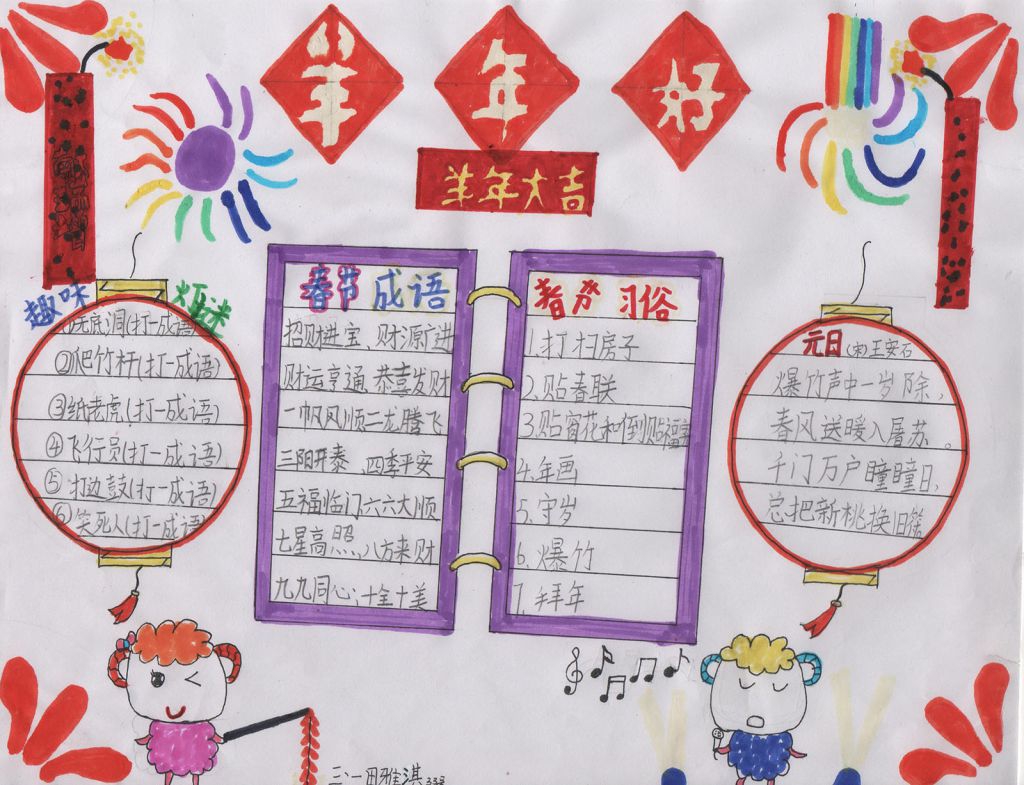 羊年好
羊年大吉
趣味灯谜
无底洞(打一成语)
②爬竹杆(打一成语)
③纸老虎(打一成语)
④飞行员(打一成语)
⑤打边鼓(打一成语)
⑥笑死人(打一成语)
春节成语
招财进宝、财源广进
财运亨通、恭喜发财
一帆风顺二龙腾飞
三阳开泰、四季平安
五福临门六六大顺
七星高照、八方来财
九九同心、十全十美
春节习俗
1.打扫房子
2.贴春联
3.贴窗花和倒贴福字
4.年画
5.守岁
6.爆竹
7.拜年
元日(宋)王安石
爆竹声中一岁除,
春风送暖入屠苏。
千门万户瞳瞳日,
总把新桃换旧符
三·一田雅淇